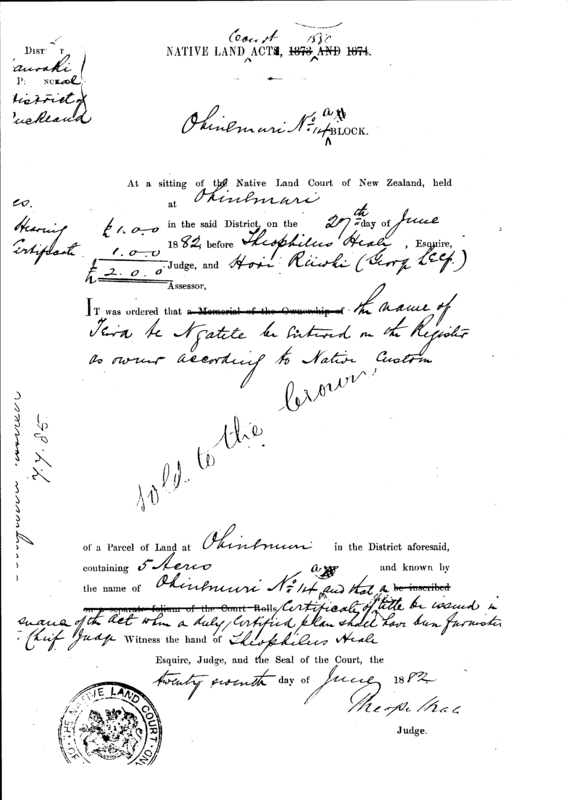 Court 1880
NATIVE LAND ACTS, 1873 AND 1874.
DIST T
auraki
P NCIAL
District of
uckland
Ohinemuri No. 14 a BLOCK.
At a sitting of the Native Land Court of New Zealand, held
at Ohinemuri
in the said District, on the 27th day of June
1882, before Theophilus Heale, Esquire,
Judge, and Hori Ririki (George
Assessor,
es.
Hearing £1.0.0
Certificate 1.0.0
£2.0.0
IT was ordered that a Memorial of the Ownership of the name of
te Ngatete be Entered on the Register
as owner according to Native Custom
Sold to the Crown,
7.7.85
of a Parcel of Land at Ohinemuri in the District aforesaid,
containing 5 Acres and known by
the name of Ohinemuri No. 14 a and that a be inscribed
on a separate folium of the Court Rolls Certificate of title be issued in
suance of the Act when a duly Certified plan shall have been furnished
Chief Judge Witness the hand of Theophilus Heale
Esquire, Judge, and the Seal of the Court, the
twenty seventh day of June 1882
Theop. Heale
Judge.
THE NATIVE LAND COURT